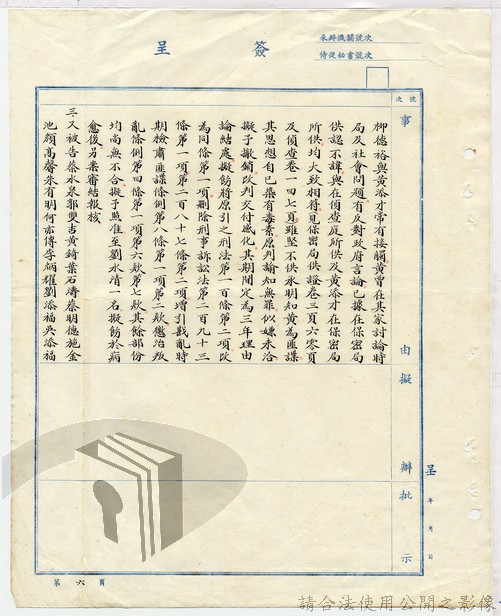 承辦機關號次
侍從秘書號次
簽呈
號次
事由擬辦批示
柳德裕與黃添才常有接觸黃曾在其家討論時
局及社會問題有反對政府言論已據在保密局
供認不諱與在偵查庭所供及黃添才在保密局
所供均大致相符見保密局供證卷三頁六零頁
及偵查卷一四七頁雖堅不供承明知黃為匪諜
其思想自已染有毒素原判諭知無罪似嫌未洽
擬予撤銷改判交付感化其期間定為三年理由
論結處擬飭將原引之刑法第一百條第二項改
為同條第一項刪除刑事訴訟法第二百九十三
條第一項第二百八十七條第二項增引戡亂時
期檢肅匪諜條例第八條第一項第二款懲治叛
亂條例第四條第一項第六款第七款其餘部份
均尚無不合擬予照准至劉水清一名擬飭於病
愈後另案審結報核
三又被告蔡水泉郭雙吉黃錡葉石濤蔡明德施金
池顏高馨朱有明何亦傳李炳耀劉添福吳添福
呈
年月日
第六頁
請合法使用公開之影像